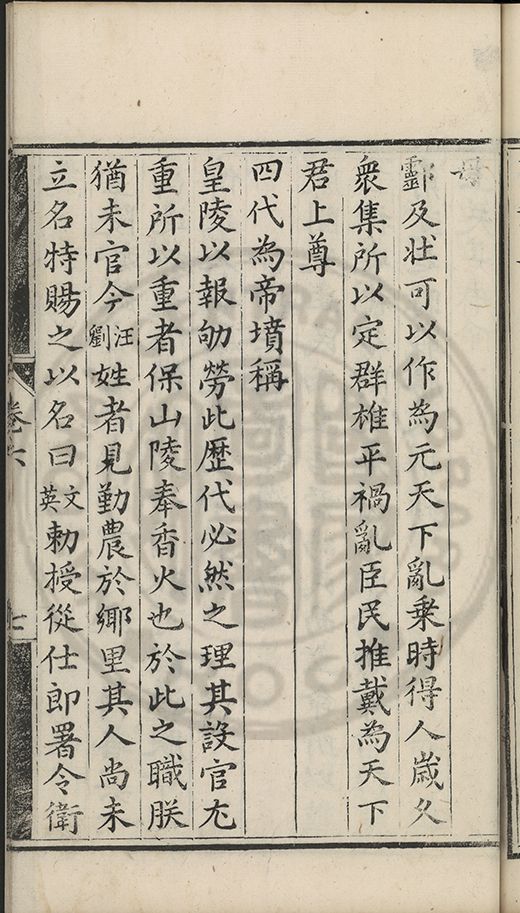 靈及壯可以作為元天下亂乗時得人歲久
衆集所以定群雄平禍亂臣民推戴為天下
君上尊
四代為帝墳稱
皇陵以報劬勞此歷代必然之理其設官尤
重所以重者保山陵奉香火也於此之職朕
猶未官今汪劉姓者見勤農於鄉里其人尚未
立名特賜之以名曰文英勅授從仕郎署令衛
卷六
七